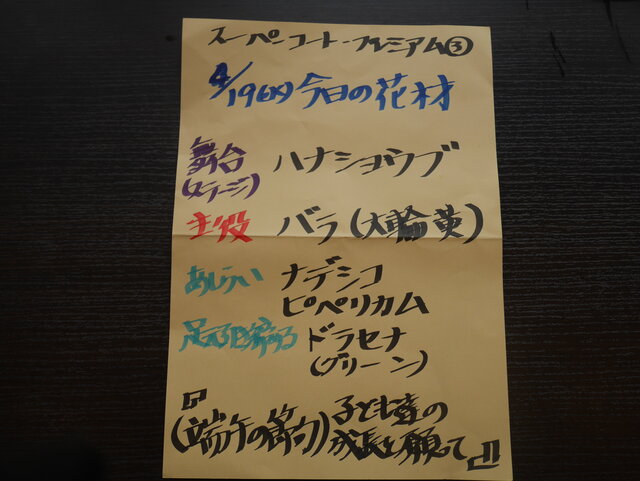 スーパーコート・プレミアム③
4/19(切) 今日の花材
舞台 ハナショウブ
(ステージ)
主役 バラ(大輪黄)
あしらい ナデシコ
ヒペリカム
足元を飾る ドラセナ
(グリーン)
『
(端午の節句) 子ども達の
成長を願って』